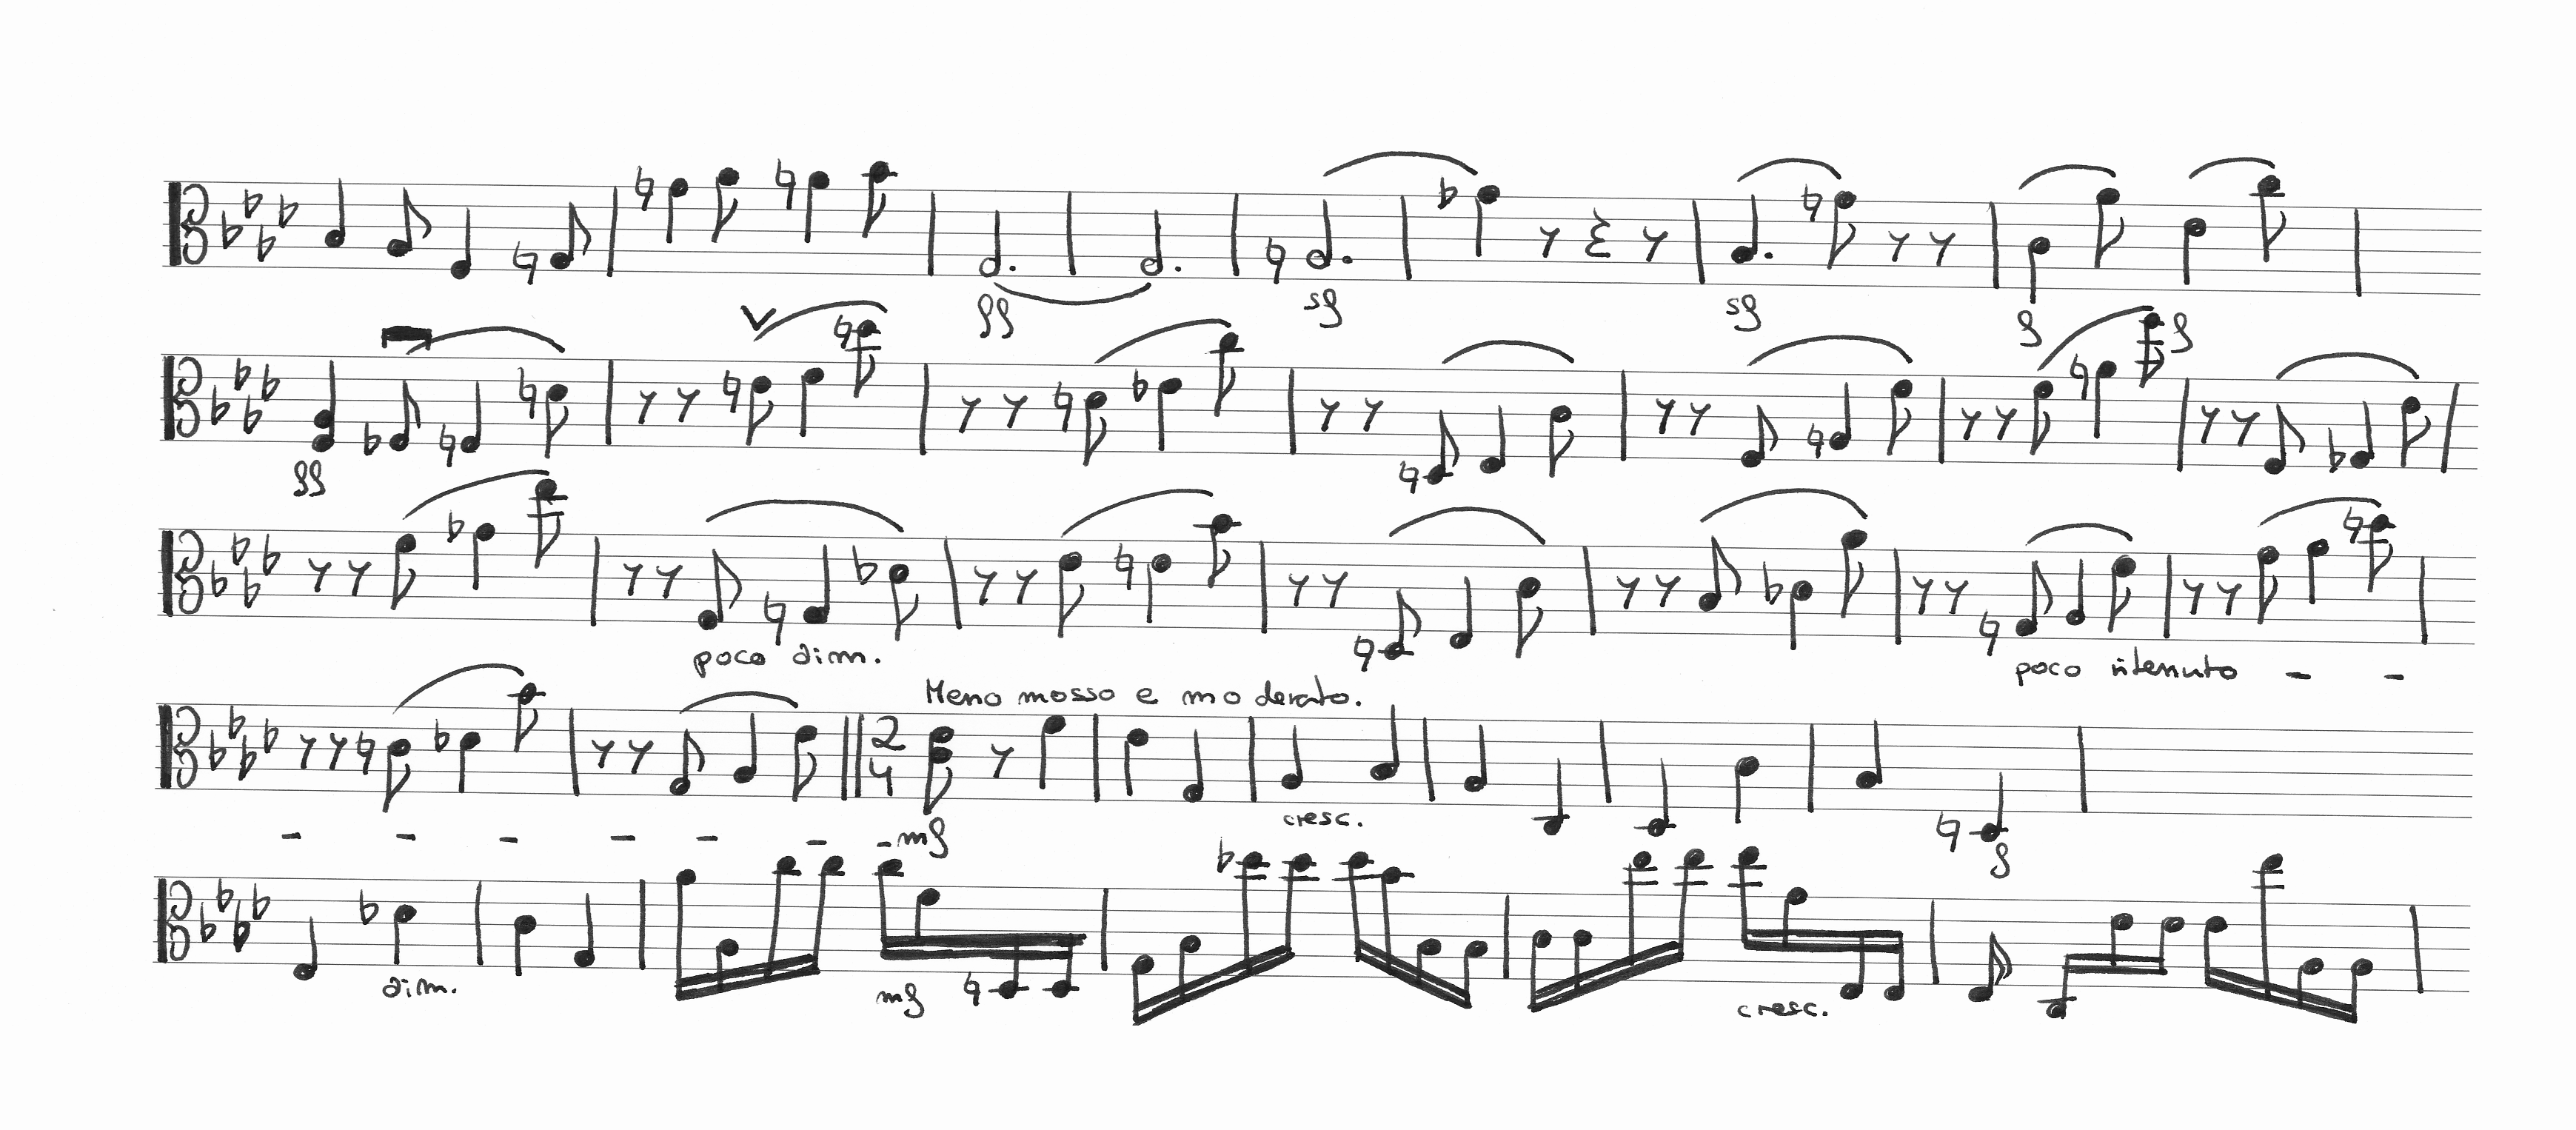 ff sf sf f f
ff
poco dim. poco ritenuto - -
Meno mosso e moderato.
2 4
cresc.
- - - - - - - mf f
dim. mf cresc.